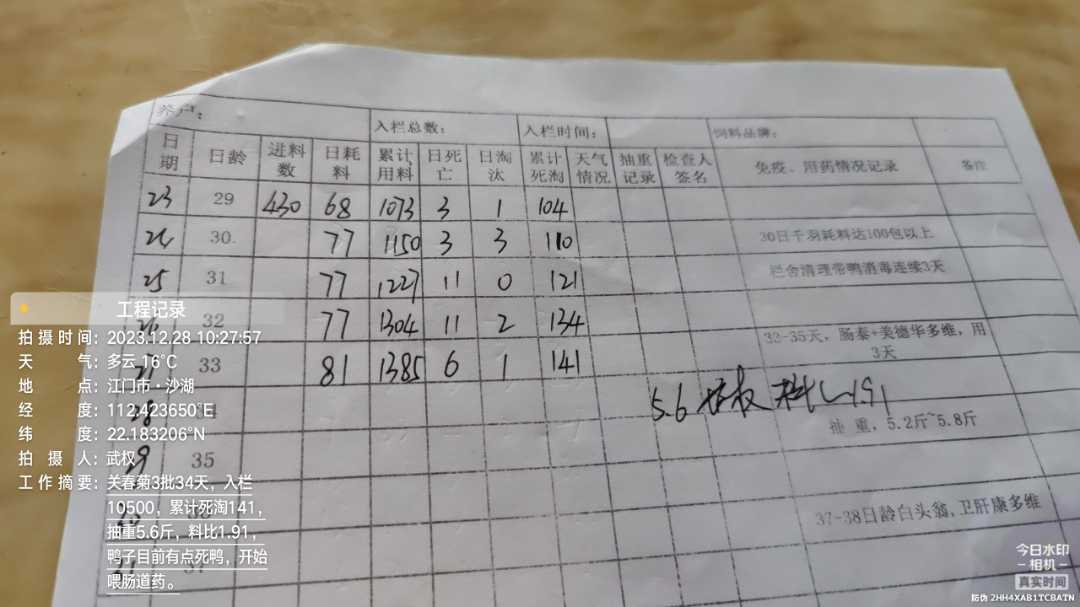 养户：
入栏总数： 入栏时间： 饲料品牌：
日期 日龄 进料数 日耗料 累计用料 日死亡 日淘汰 累计死淘 天气情况 抽重记录 检查人签名 免疫、用药情况记录 备注
23 29 430 68 1073 3 1 104
24 30 77 1150 3 3 110 30日千羽耗料达100包以上
25 31 77 1227 11 0 121 栏舍清理带鸭消毒连续3天
32 77 1304 11 2 134 32-35天，肠泰+美德华多维，用3天
33 81 1385 6 1 141
5.6 料比1.91
28
抽重，5.2斤~5.8斤
35
37-38日龄白头翁，卫肝康多维
工程记录
拍摄时间：2023.12.28 10:27:57
天气：多云 16°C
地点：江门市·沙湖
经度：112.423650°E
纬度：22.183206°N
拍摄人：武权
工作摘要：关春菊3批34天，入栏
10500，累计死淘141，
抽重5.6斤，料比1.91，
鸭子目前有点死鸭，开始
喂肠道药。
今日水印
-相机-
真实时间
防伪 2HH4XAB1TCBATN